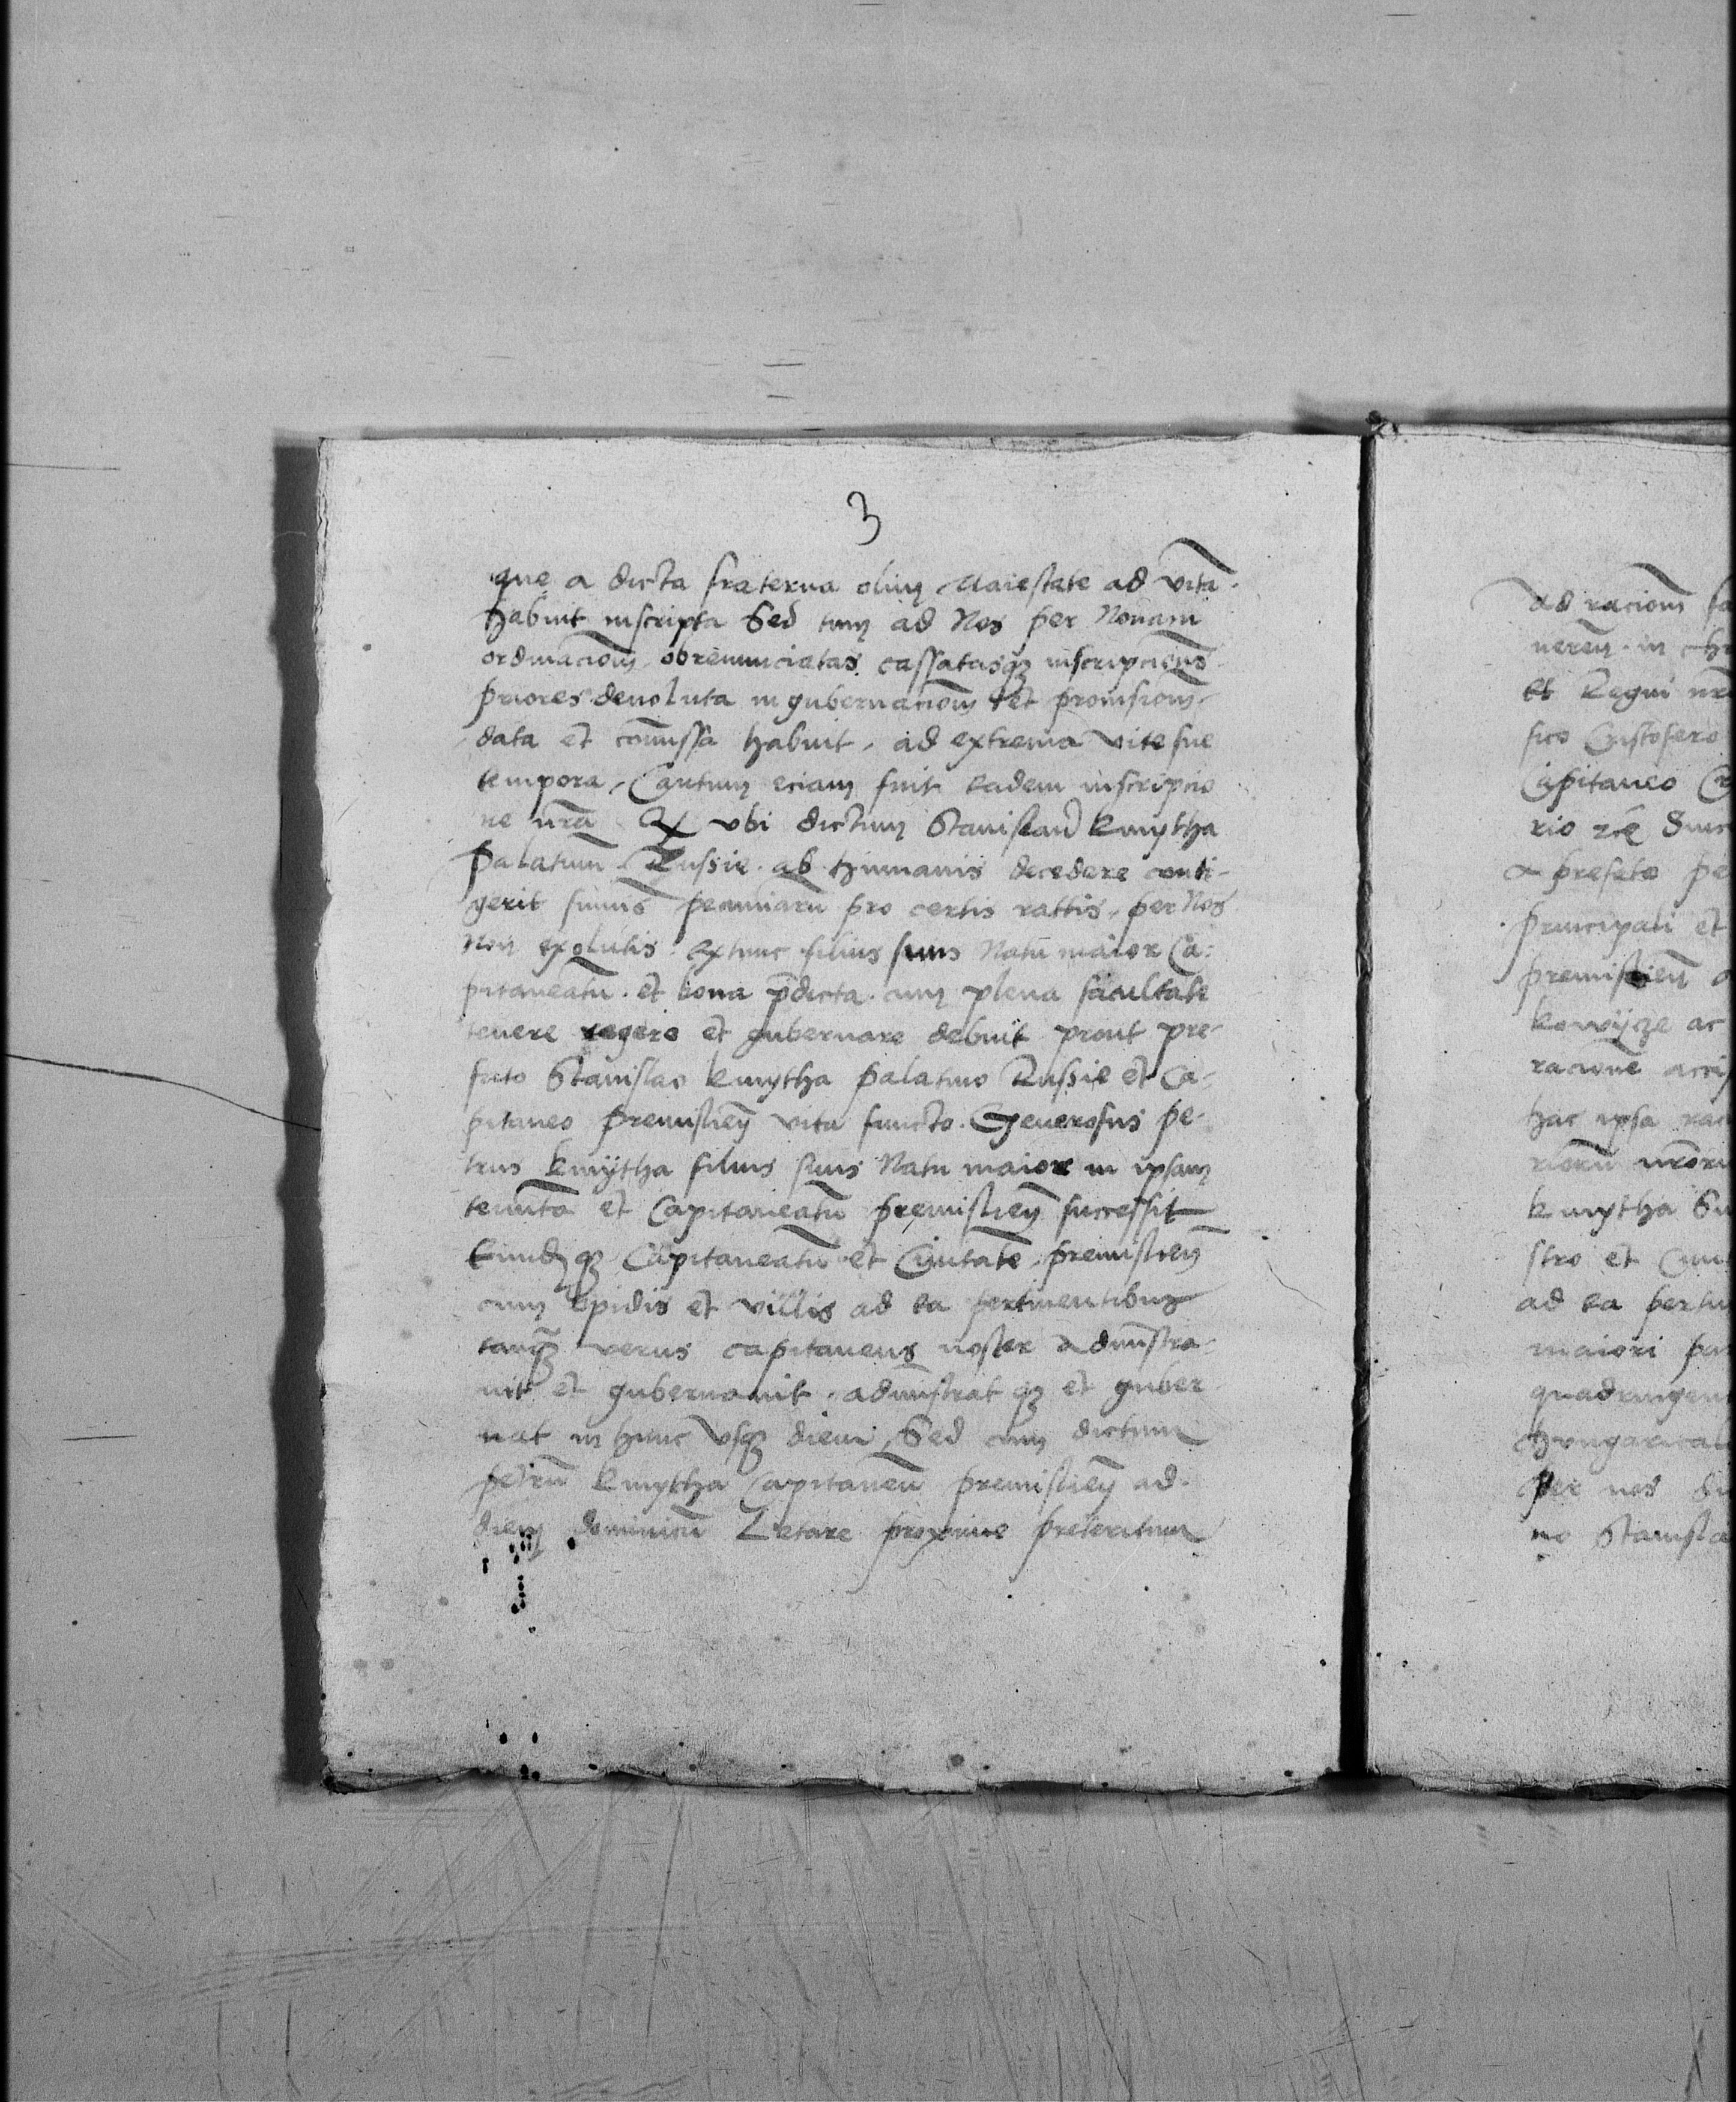 3
que a dicta fraterna olim Maiestate ad vitā
habuit inscripta Sed tum ad Nos per Nouam
ordinacionē obrenunciatas cassatasqȝ inscripciones
priores deuoluta in gubernacionē et prouisionē
data et cōmissa habuit, ad extrema vite sue
tempora, Cautum eciam fuit eadem inscripcio
ne nrā Qz vbi dictum Stanislaū Kmytha
palatinū Russie ab humanis decedere conti-
gerit sūmis pecuniarū pro certis rattis, per Nos
Non exolutis extunc filius suus Natu maior Ca:
pitaneatū et bona p̄dicta cum plena facultate
tenere regere et gubernare debuit prout pre-
fato Stanislao Kmytha palatino Russie et Ca-
pitaneo premisliēn vita functo. Generosus pe-
trus Kmytha filius suus Natu maior in ipsam
tenutā et Capitaneatū premisliēn successit
Eundqȝ Capitaneatū et Ciuitatē premisliēn
cum opidis et villis ad ea pertinentibus
tanqȝ verus capitaneus noster admīstra-
uit et gubernauit, admīstrat qȝ et guber
nat in hunc vsqȝ diem, Sed cum dictum
petrū Kmytha Capitaneū premisliēn ad
diem dominicū Letare proxime preteritum
Ad racionē
nerēn in
et Regni nr̄
fico Cristofero
Capitaneo
rio zc̄
prefato
principali et
premisliēn
ac
racione
hac ipsa
nr̄oru
Kmytha
stro et
ad ea
maiori
quadringen
hungarical
per nos
no Stanisla